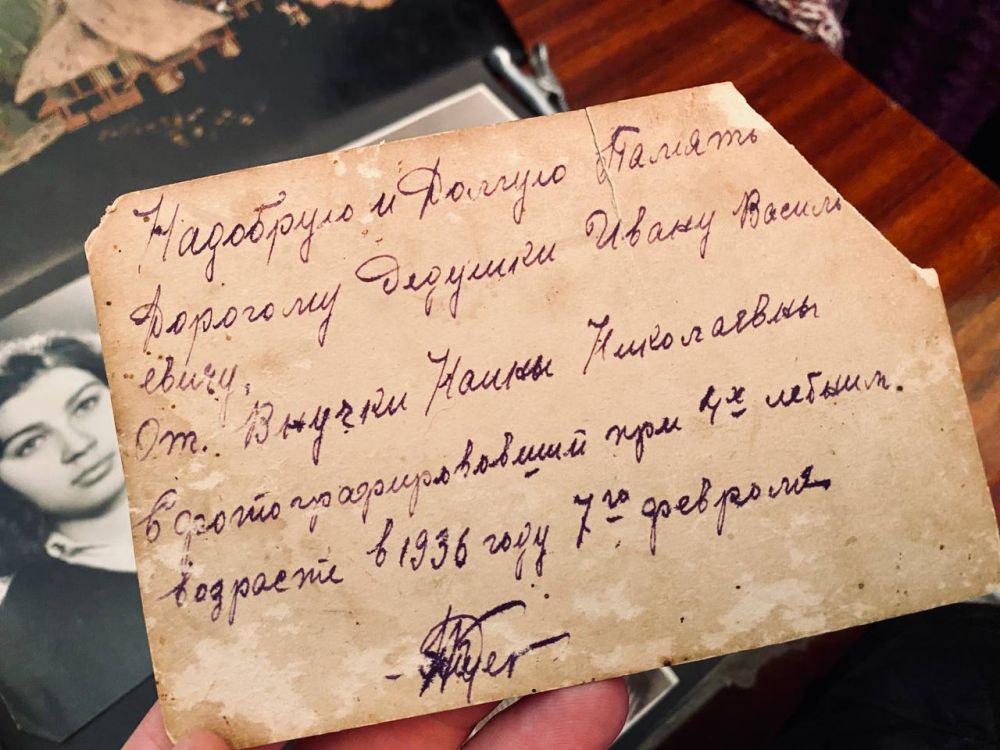 Надобрую и Долгую Память
Дорогому Дедушки Ивану Василь
евичу,
От. Внучки Наины Николаевны
Сфотографировавший при 4х летним.
возрасти в 1936 году 7го февроля